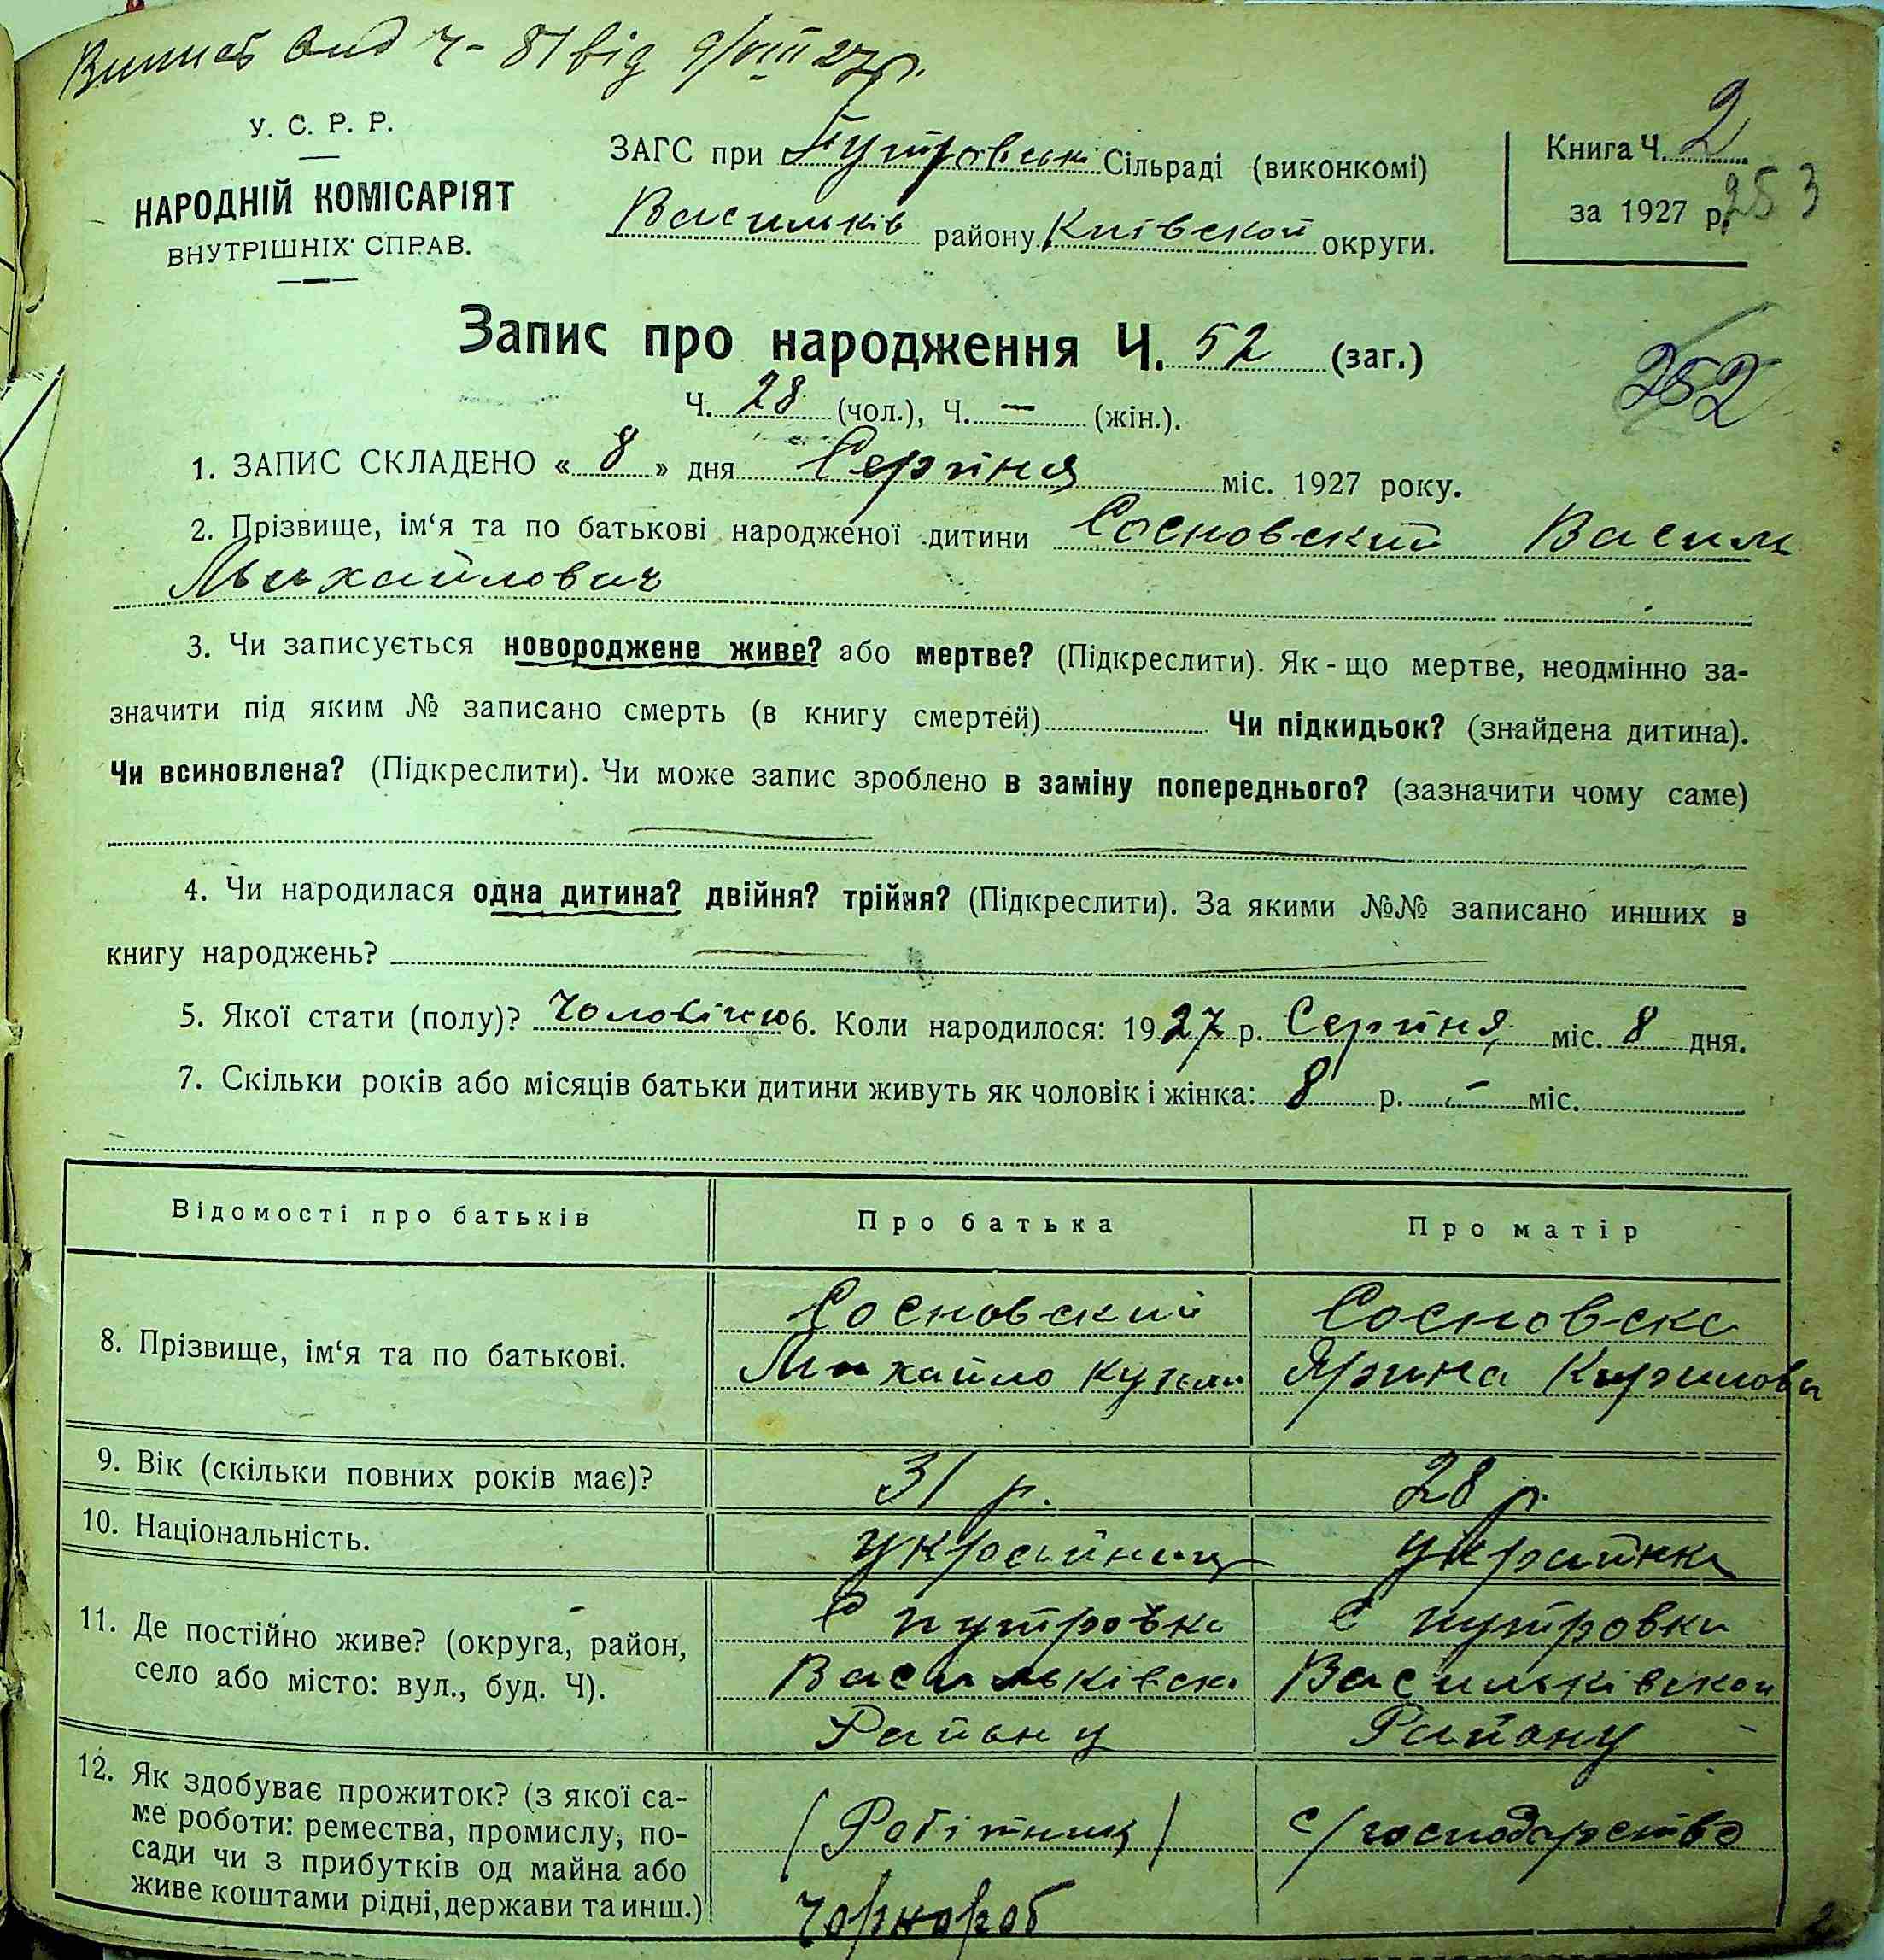 Ч-81 від 9/VIII 27р.
У. С. Р. Р.
НАРОДНІЙ КОМІСАРІЯТ
ВНУТРІШНІХ СПРАВ.
ЗАГС при Путровські Сільраді (виконкомі)
Васильків району Київской округи.
Книга Ч. 2
за 1927 р. 253
Запис про народження Ч. 52 (заг.)
252
Ч. 28 (чол.), Ч. — (жін.).
1. ЗАПИС СКЛАДЕНО « 8 » дня Серпня міс. 1927 року.
2. Прізвище, ім‘я та по батькові народженої дитини Сосновский Васили
Михайлович
3. Чи записується новороджене живе? або мертве? (Підкреслити). Як - що мертве, неодмінно за-
значити під яким № записано смерть (в книгу смертей) Чи підкидьок? (знайдена дитина).
Чи всиновлена? (Підкреслити). Чи може запис зроблено в заміну попереднього? (зазначити чому саме)
4. Чи народилася одна дитина? двійня? трійня? (Підкреслити). За якими №№ записано инших в
книгу народжень?
5. Якої стати (полу)? Чоловічою 6. Коли народилося: 1927 р. Серпня міс. 8 дня.
7. Скільки років або місяців батьки дитини живуть як чоловік і жінка: 8 р. - міс.
Відомості про батьків Про батька Про матір
8. Прізвище, ім‘я та по батькові.
Сосновский
Михайло
Сосновска
Ярина Кирилова
9. Вік (скільки повних років має)? 31 р. 28 р.
10. Національність. украйинець украйинка
11. Де постійно живе? (округа, район,
село або місто: вул., буд. Ч).
С путровка
Васильківск.
Району
С путровки
Васильківской
Району
12. Як здобуває прожиток? (з якої са-
ме роботи: ремества, промислу, по-
сади чи з прибутків од майна або
живе коштами рідні, держави та инш.)
/Робітник/
Чорнороб
с/господарство